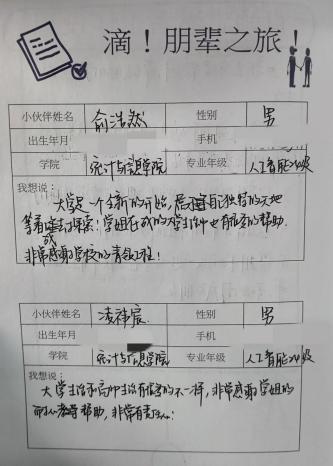 滴！朋辈之旅！
小伙伴姓名 俞浩然 性别 男
出生年月 手机
学院 统计与信息学院 专业年级 人工智能24级
我想说：
大学是一个全新的开始，属于每自己独特的天地
等着我去探索！学姐在我的大学生活中也有很多的帮助
非常感谢学校的青藤工程！
小伙伴姓名 凌祎宸 性别 男
出生年月 手机
学院 统计与信息学院 专业年级 人工智能24级
我想说：
大学生活和高中生活有很多的不一样，非常感谢学姐的
耐心教导帮助，非常有责任心！